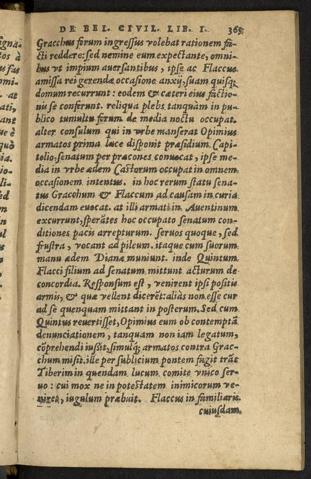 DE BEL. CIVIL. LIB. I. 365
Gracchus forum ingressus volebat rationem fa-
cti reddere: sed nemine eum expectante, omni-
bus vt impium auersantibus, ipse ac Flaccus
amissa rei gerendæ occasione anxij, suam quisq;
domum recurrunt: eodem & cæteri eius factio-
nis se conferunt. reliqua plebs tanquàm in pu-
blico tumultu forum de media noctu occupat.
alter consulum qui in vrbe manserat Opimius
armatos prima luce disponit præsidium. Capi-
tolio: senatum per præcones conuocat, ipse me-
dia in vrbe ædem Castorum occupat in omnem
occasionem intentus. in hoc rerum statu sena-
tus Gracchum & Flaccum ad causam in curia
dicendam euocat. at illi armati in Auentinum
excurrunt, sperãtes hoc occupato senatum con-
ditiones pacis arrepturum. seruos quoque, sed
frustra, vocant ad pileum. itaque cum suorum
manu ædem Dianæ muniunt. inde Quintum
Flacci filium ad senatum mittunt acturum de
concordia. Responsum est, venirent ipsi positis
armis, & quæ vellent dicerẽt: aliàs non esse cur
ad se quenquam mittant in posterum. Sed cum
Quintus reuertisset, Opimius eum ob contemptã
denunciationem, tanquam non iam legatum,
cõprehendi iussit, simulq; armatos contra Grac-
chum misit. ille per sublicium pontem fugit trãs
Tiberim in quendam lucum comite vnico ser-
uo: cui mox ne in potestatem inimicorum ve-
niret, iugulum præbuit. Flaccus in familiaris
cuiusdam